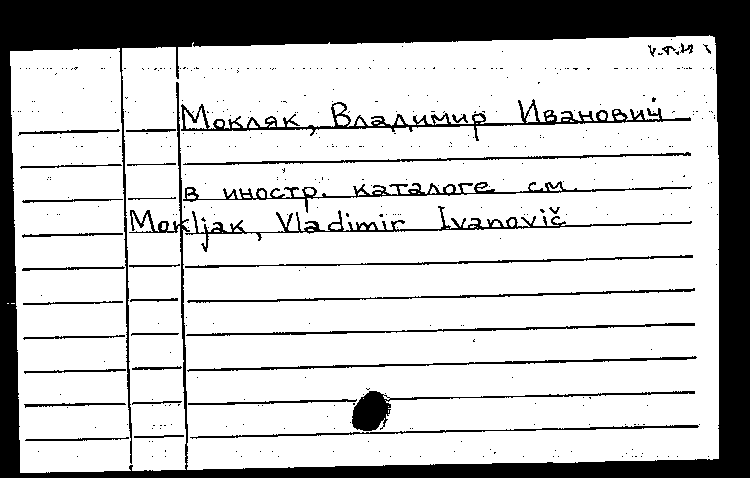 Мокляк, Владимир Иванович
в иностр. каталоге см.
Mokljak, Vladimir Ivanovič